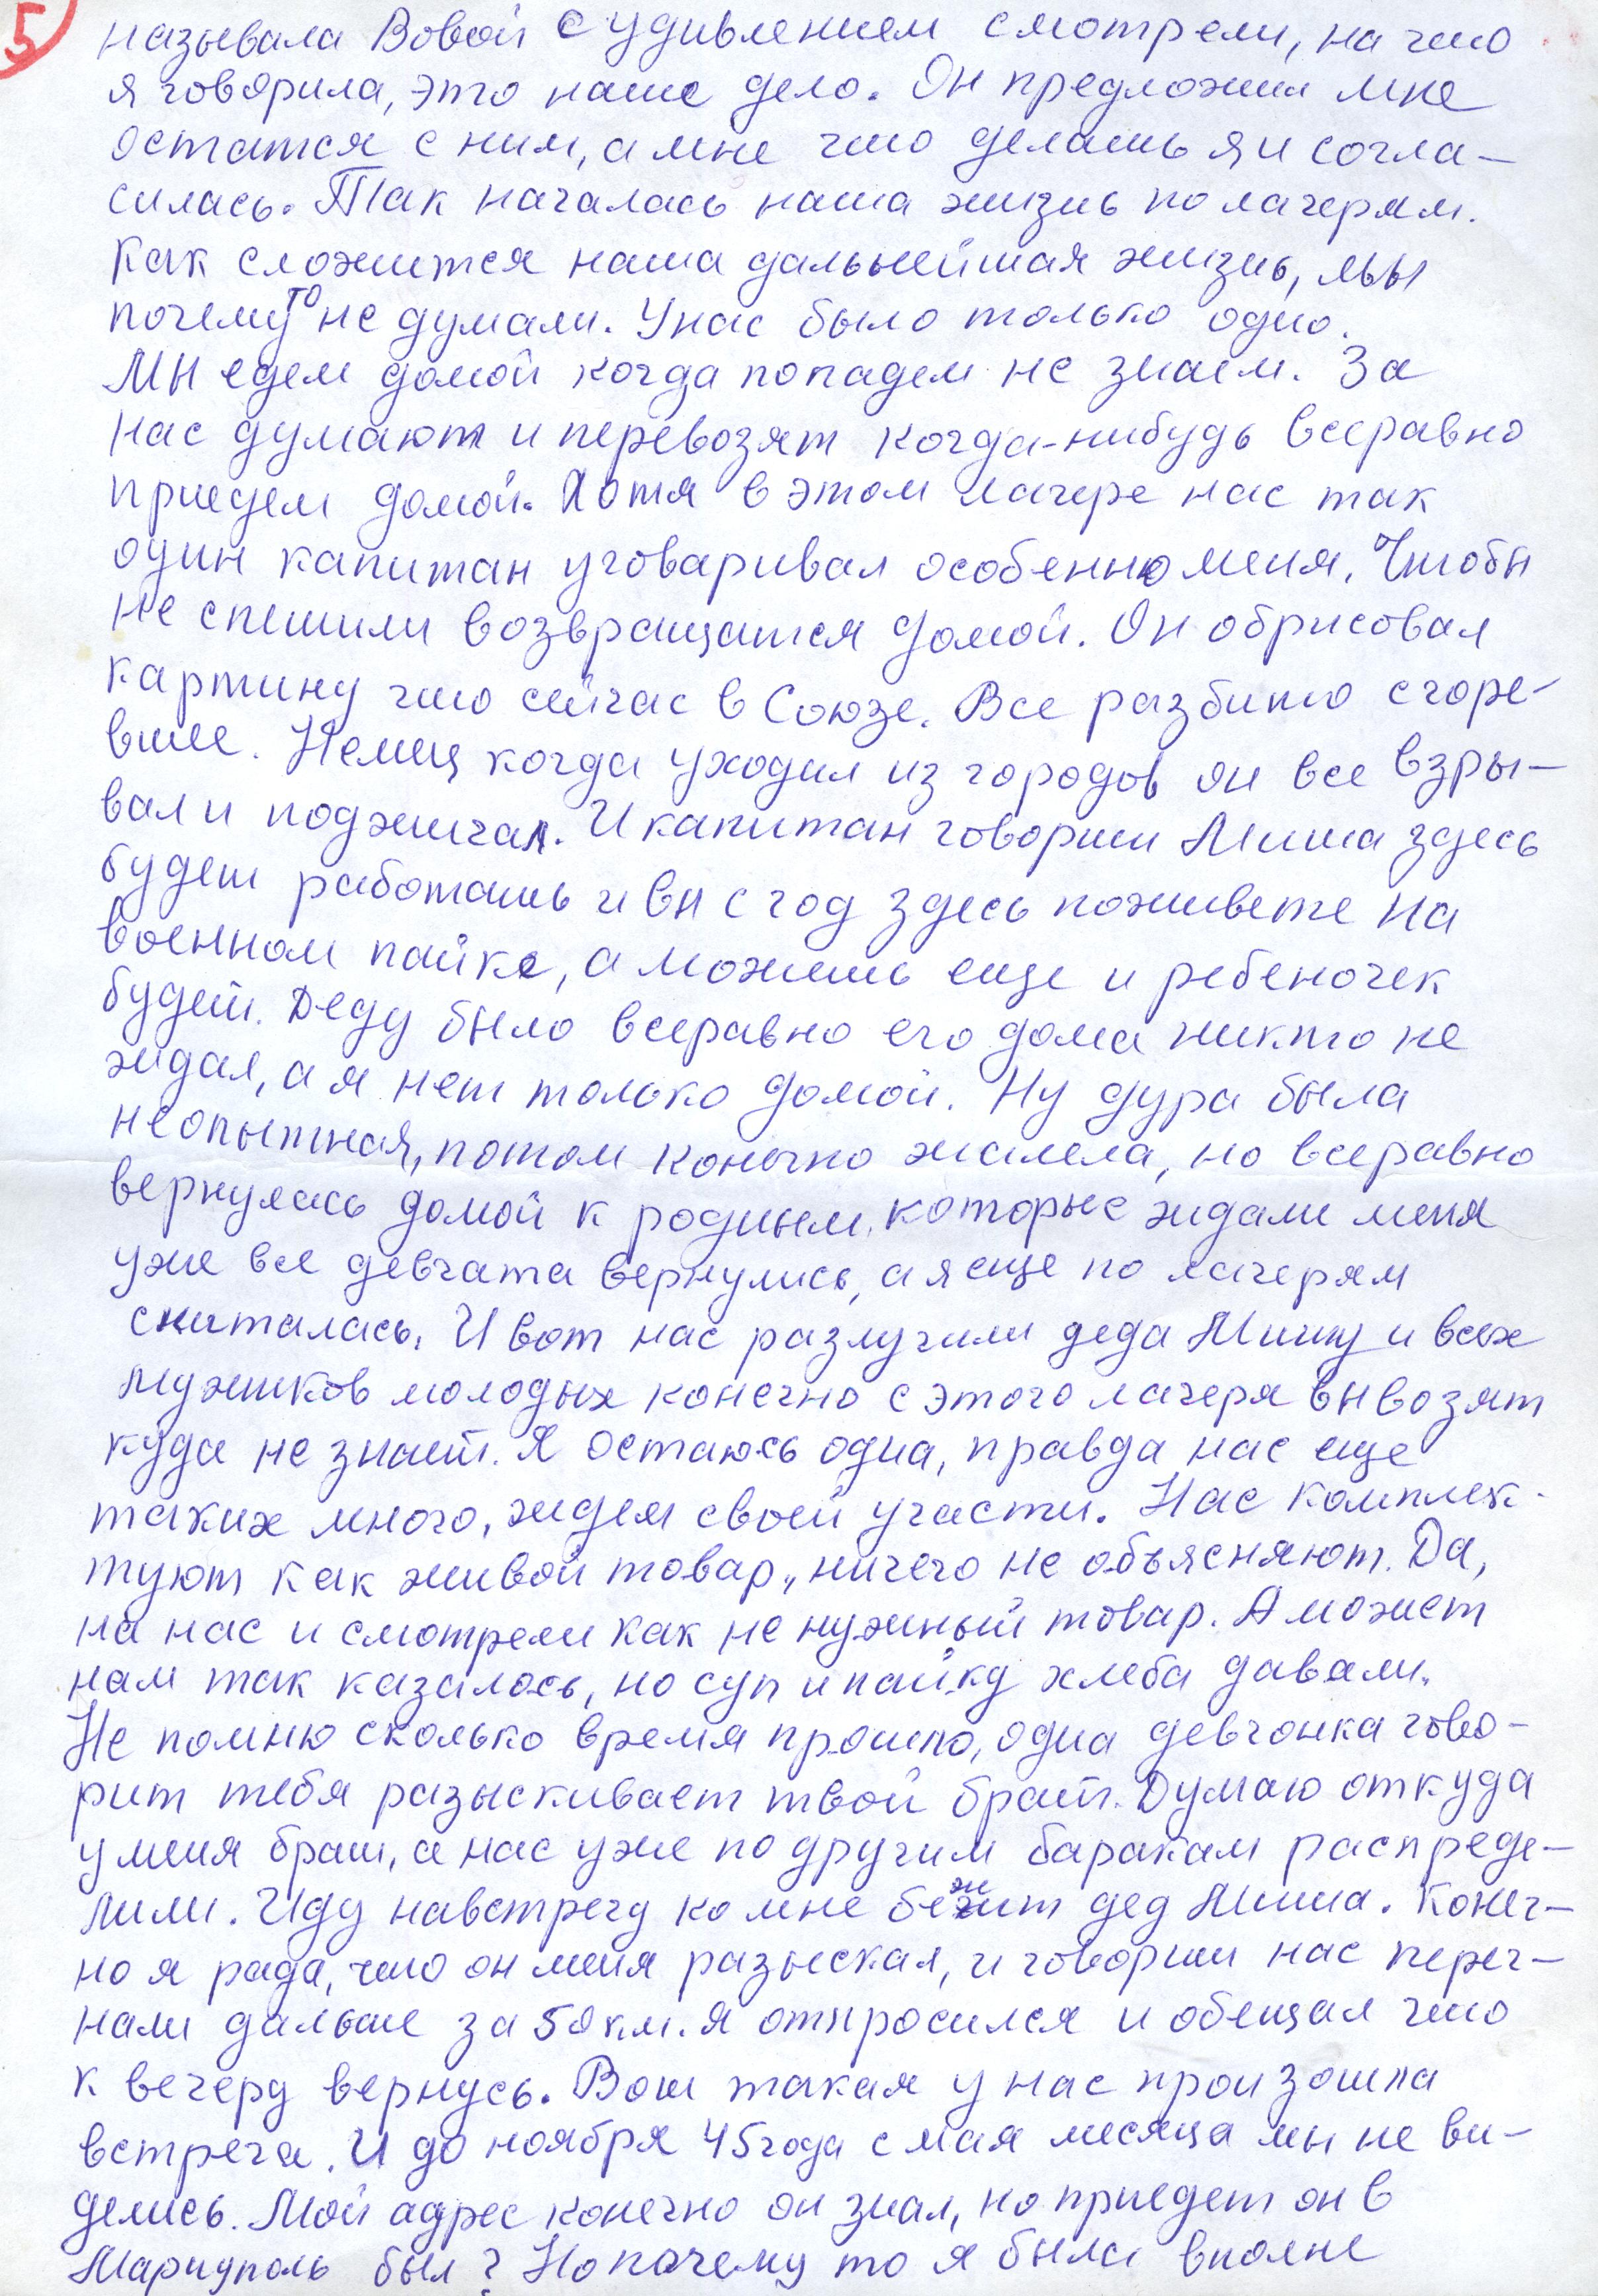 5
называла Вовой с удивлением смотрели, на что
я говорила, это наше дело. Он предложил мне
остатся с ним, а мне что делать я и согла-
силась. Так началась наша жизнь по лагерям.
Как сложится наша дальнейшая жизнь, мы
почему то не думали. У нас было только одно.
Мы едем домой когда попадем не знаем. За
нас думают и перевозят когда-нибудь всеравно
приедем домой. Хотя в этом лагере нас так
один капитан уговаривал особенно меня. Чтобы
не спешили возвращатся домой. Он обрисовал
картину что сейчас в Союзе. Все разбито сгоре-
вшее. Немец когда уходил из городов он все взры-
вал и поджигал. И капитан говорит Миша здесь
будет работать и вы с год здесь поживете на
военном пайке, аможеть еще и ребеночек
будет. Деду было всеравно его дома никто не
ждал, а я нет только домой. Ну дура была
неопытная, потом конечно жалела, но всеравно
вернулась домой к родным, которые ждали меня
уже все девчата вернулись, а я еще по лагерям
скиталась. И вот нас разлучили деда Мишу и всех
мужиков молодых конечно с этого лагеря вывозят
куда не знает. Я остаюсь одна, правда нас еще
таких много, ждем своей участи. Нас комплек-
туют как живой товар, ничего не объясняют. Да,
на нас и смотрели как не нужный товар. А может
нам так казалось, но суп и пайку хлеба давали.
Не помню сколько время прошло, одна девчонка гово-
рит тебя разыскивает твой брат. Думаю откуда
у меня брат, а нас уже по другим баракам распреде-
лили. Иду навстречу ко мне бежит дед Миша. Конеч-
но я рада, что он меня разыскал, и говорит нас перег-
нали дальше за 50 км. Я отпросился и обещал что
к вечеру вернусь. Вот такая у нас произошла
встреча. И до ноября 45 года с мая месяца мы не ви-
делись. Мой адрес конечно он знал, но приедет он в
Мариуполь был? Но почему то я была вполне